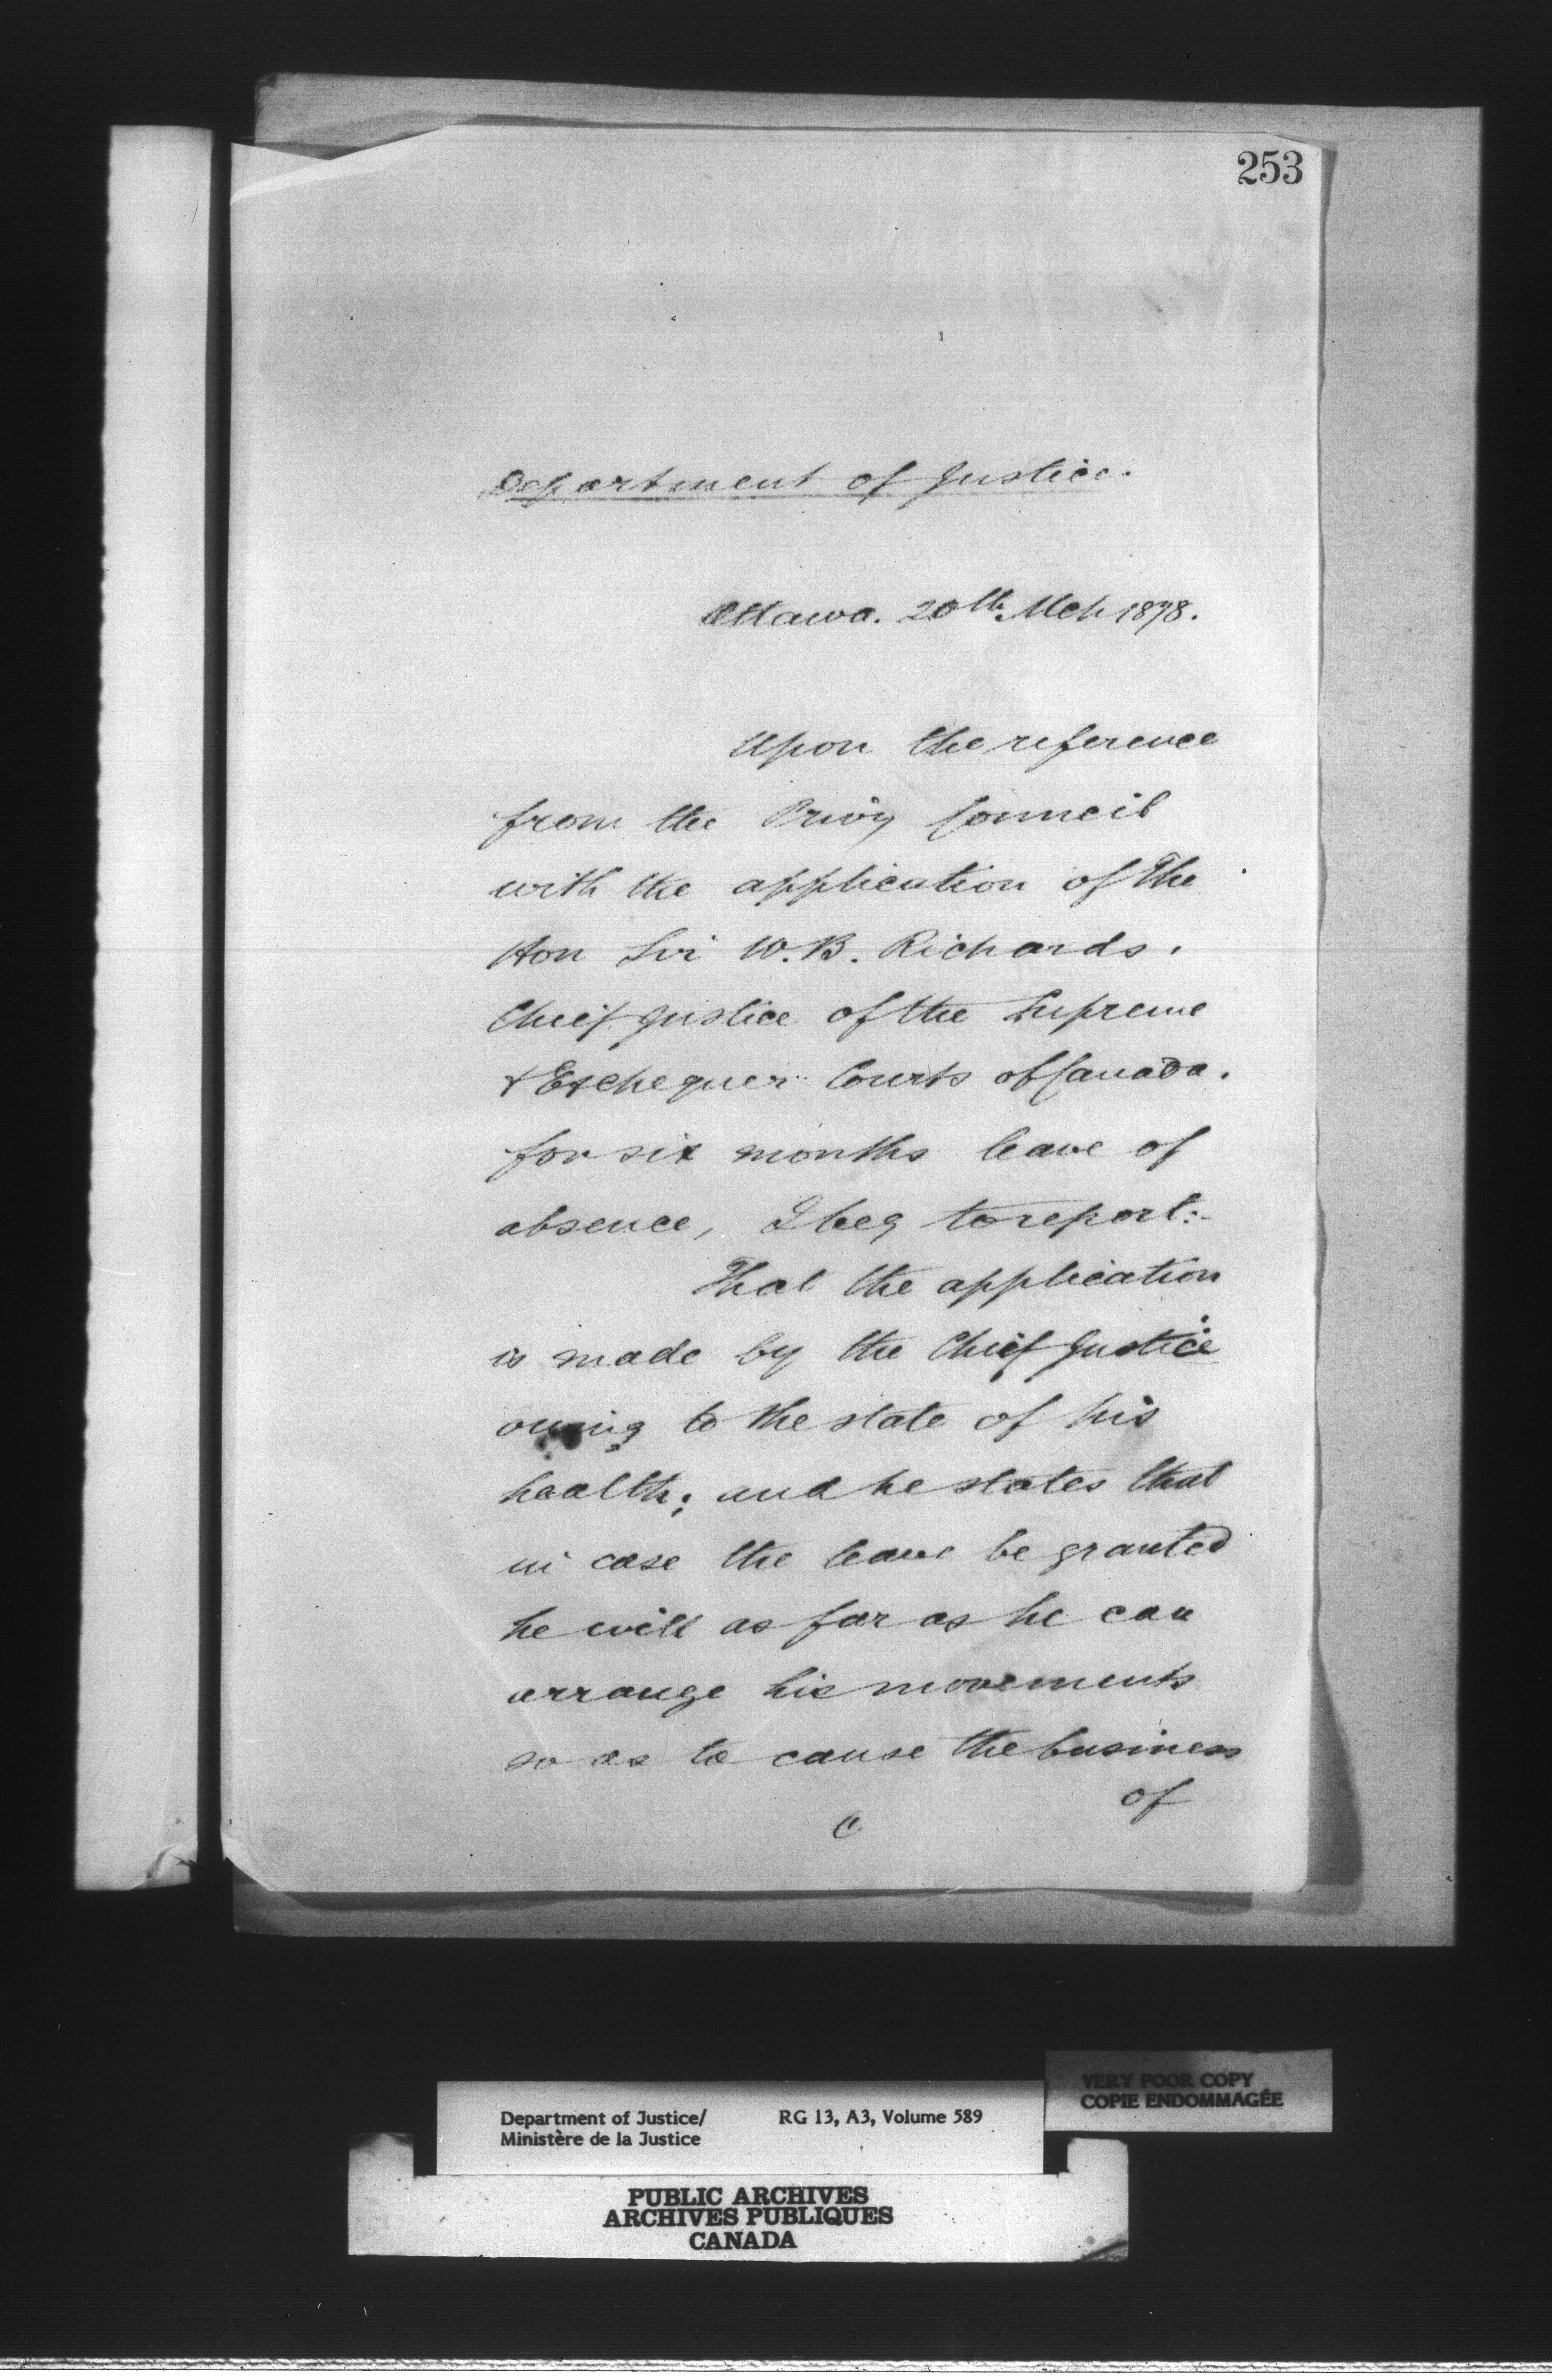 253
Department of Justice.
Ottawa. 20th Mch 1878.
Upon the reference
from the Privy Council
with the application of The
Hon Sir W.B. Richards.
Chief Justice of the Supreme
& Exchequer Courts of Canada.
for six months leave of
absence, I beg to report:-
That the application
is made by the Chief Justice
owing to the state of his
health; and he states that
in case the leave be granted
he will as far as he can
arrange his movements
so as to cause the business
of
VERY POOR COPY
COPIE ENDOMMAGÉE
Department of Justice/ RG 13, A3, Volume 589
Ministère de la Justice
PUBLIC ARCHIVES
ARCHIVES PUBLIQUES
CANADA